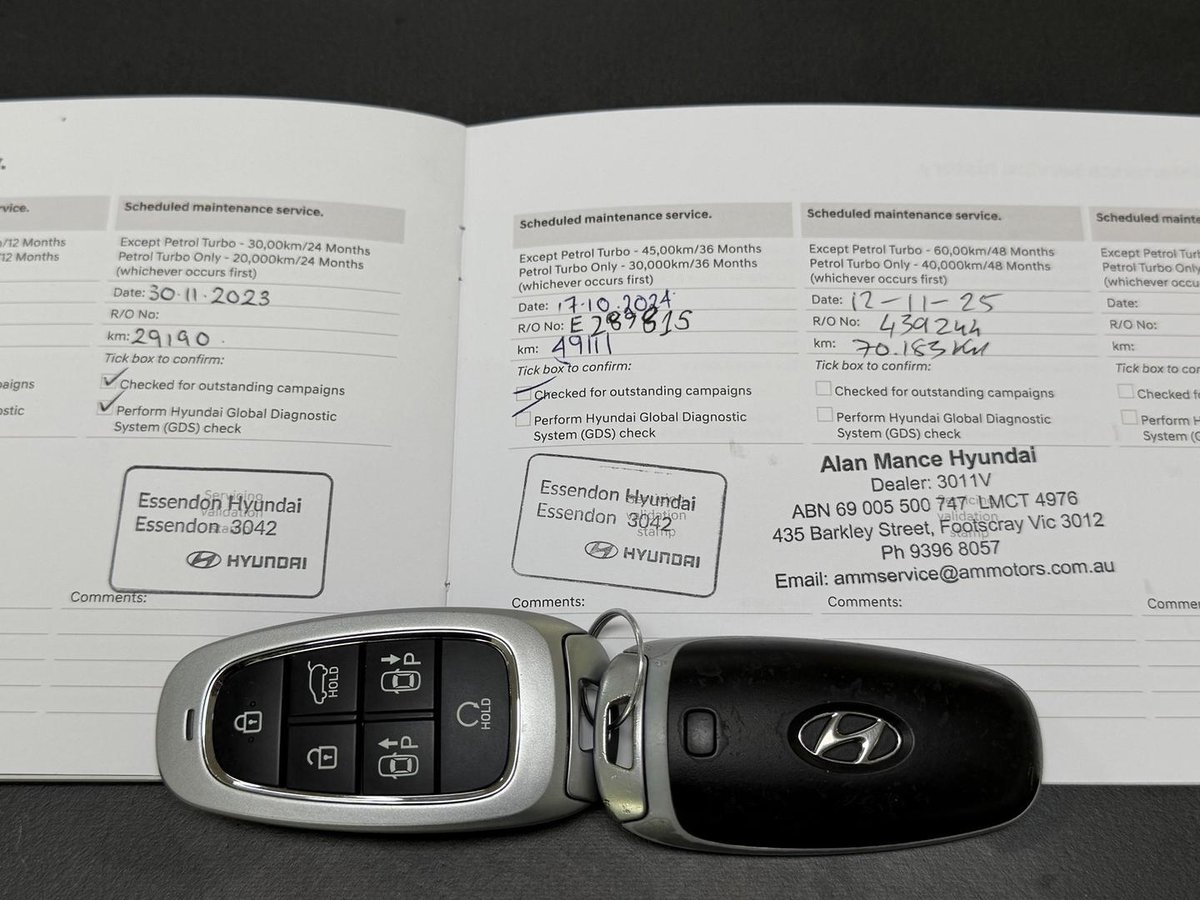 vice.
/12 Months
12 Months
aigns
stic
Scheduled maintenance service.
Except Petrol Turbo - 30,00km/24 Months
Petrol Turbo Only - 20,000km/24 Months
(whichever occurs first)
Date: 30.11.2023
R/O No:
km: 29190.
Tick box to confirm:
Checked for outstanding campaigns
Perform Hyundai Global Diagnostic
System (GDS) check
Servicing
validation
Essendon Hyundai
Essendon 3042
HYUNDAI
Comments:
Scheduled maintenance service.
Except Petrol Turbo - 45,00km/36 Months
Petrol Turbo Only - 30,000km/36 Months
(whichever occurs first)
Date: 17.10.2024
R/O No: E 289815
km: 49111
Tick box to confirm:
Checked for outstanding campaigns
Perform Hyundai Global Diagnostic
System (GDS) check
Essendon Hyundai
Essendon 3042
validation
stamp
HYUNDAI
Comments:
Scheduled maintenance service.
Except Petrol Turbo - 60,00km/48 Months
Petrol Turbo Only - 40,000km/48 Months
(whichever occurs first)
Date: 12-11-25
R/O No: 439244
km: 70.183 KM
Tick box to confirm:
Checked for outstanding campaigns
Perform Hyundai Global Diagnostic
System (GDS) check
Alan Mance Hyundai
Dealer: 3011V
ABN 69 005 500 747 LMCT 4976
435 Barkley Street, Footscray Vic 3012
Ph 9396 8057
Email: ammservice@ammotors.com.au
validation
stamp
Comments:
Scheduled mainte
Except Petrol Turb
Petrol Turbo Only
(whichever occurs
Date:
R/O No:
km:
Tick box to con
Checked fo
Perform H
System (G
Comme
HOLD
P
P
HOLD